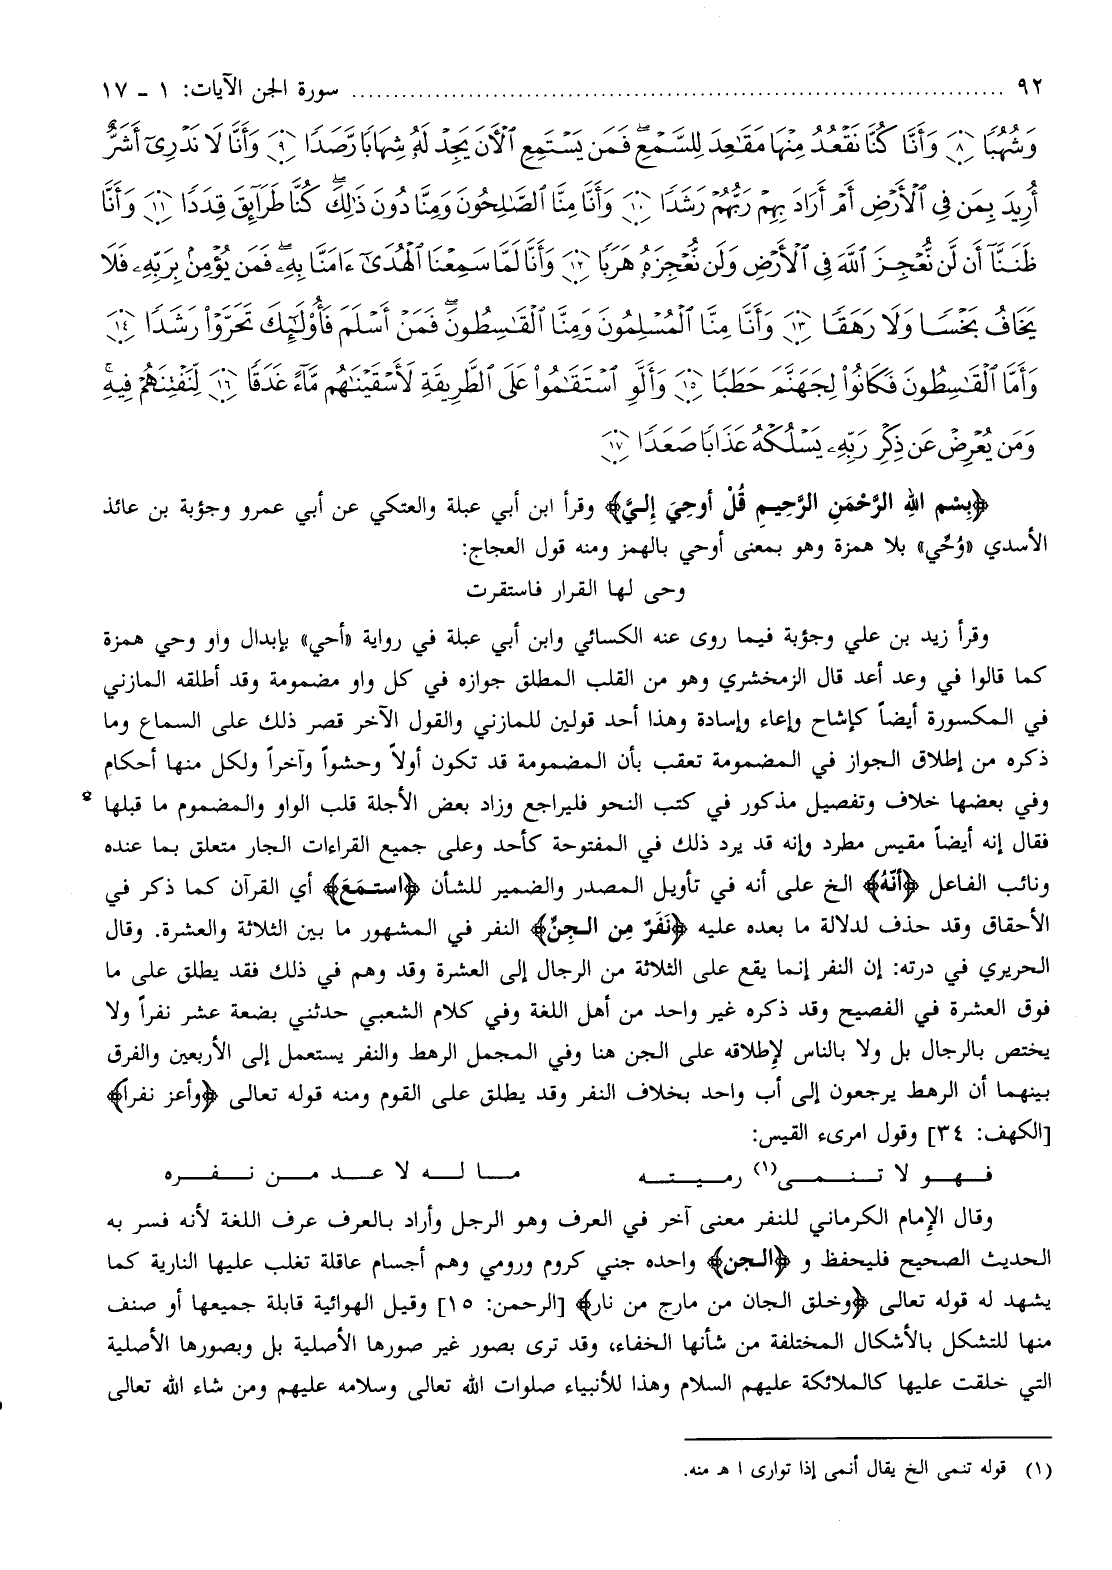 ٩٢ ........................................................ سورة الجن الآيات: ١ ـ ١٧
وَشُهُبًا ﴿٨﴾ وَأَنَّا كُنَّا نَقْعُدُ مِنْهَا مَقَاعِدَ لِلسَّمْعِ ۖ فَمَن يَسْتَمِعِ ٱلْآنَ يَجِدْ لَهُۥ شِهَابًا رَّصَدًا ﴿٩﴾ وَأَنَّا لَا نَدْرِىٓ أَشَرٌّ
أُرِيدَ بِمَن فِى ٱلْأَرْضِ أَمْ أَرَادَ بِهِمْ رَبُّهُمْ رَشَدًا ﴿١٠﴾ وَأَنَّا مِنَّا ٱلصَّـٰلِحُونَ وَمِنَّا دُونَ ذَٰلِكَ ۖ كُنَّا طَرَآئِقَ قِدَدًا ﴿١١﴾ وَأَنَّا
ظَنَنَّآ أَن لَّن نُّعْجِزَ ٱللَّهَ فِى ٱلْأَرْضِ وَلَن نُّعْجِزَهُۥ هَرَبًا ﴿١٢﴾ وَأَنَّا لَمَّا سَمِعْنَا ٱلْهُدَىٰٓ ءَامَنَّا بِهِۦ ۖ فَمَن يُؤْمِنۢ بِرَبِّهِۦ فَلَا
يَخَافُ بَخْسًا وَلَا رَهَقًا ﴿١٣﴾ وَأَنَّا مِنَّا ٱلْمُسْلِمُونَ وَمِنَّا ٱلْقَـٰسِطُونَ ۖ فَمَنْ أَسْلَمَ فَأُو۟لَـٰٓئِكَ تَحَرَّوْا۟ رَشَدًا ﴿١٤﴾
وَأَمَّا ٱلْقَـٰسِطُونَ فَكَانُوا۟ لِجَهَنَّمَ حَطَبًا ﴿١٥﴾ وَأَلَّوِ ٱسْتَقَـٰمُوا۟ عَلَى ٱلطَّرِيقَةِ لَأَسْقَيْنَـٰهُم مَّآءً غَدَقًا ﴿١٦﴾ لِّنَفْتِنَهُمْ فِيهِ ۚ
وَمَن يُعْرِضْ عَن ذِكْرِ رَبِّهِۦ يَسْلُكْهُ عَذَابًا صَعَدًا ﴿١٧﴾
﴿بِسْمِ اللهِ الرَّحْمَنِ الرَّحِيمِ قُلْ أُوحِيَ إِليَّ﴾ وقرأ ابن أبي عبلة والعتكي عن أبي عمرو وجؤية بن عائذ
الأسدي «وُحِّي» بلا همزة وهو بمعنى أوحي بالهمز ومنه قول العجاج:
وحى لها القرار فاستقرت
وقرأ زيد بن علي وجؤية فيما روى عنه الكسائي وابن أبي عبلة في رواية «أحي» بإبدال واو وحي همزة
كما قالوا في وعد أعد قال الزمخشري وهو من القلب المطلق جوازه في كل واو مضمومة وقد أطلقه المازني
في المكسورة أيضاً كإشاح وإعاء وإسادة وهذا أحد قولين للمازني والقول الآخر قصر ذلك على السماع وما
ذكره من إطلاق الجواز في المضمومة تعقب بأن المضمومة قد تكون أولاً وحشواً وآخراً ولكل منها أحكام
وفي بعضها خلاف وتفصيل مذكور في كتب النحو فليراجع وزاد بعض الأجلة قلب الواو والمضموم ما قبلها
فقال إنه أيضاً مقيس مطرد وإنه قد يرد ذلك في المفتوحة كأحد وعلى جميع القراءات الجار متعلق بما عنده
ونائب الفاعل ﴿أَنَّهُ﴾ الخ على أنه في تأويل المصدر والضمير للشأن ﴿استمَعَ﴾ أي القرآن كما ذكر في
الأحقاق وقد حذف لدلالة ما بعده عليه ﴿نَفَرٌ مِن الجِنِّ﴾ النفر في المشهور ما بين الثلاثة والعشرة. وقال
الحريري في درته: إن النفر إنما يقع على الثلاثة من الرجال إلى العشرة وقد وهم في ذلك فقد يطلق على ما
فوق العشرة في الفصيح وقد ذكره غير واحد من أهل اللغة وفي كلام الشعبي حدثني بضعة عشر نفراً ولا
يختص بالرجال بل ولا بالناس لإِطلاقه على الجن هنا وفي المجمل الرهط والنفر يستعمل إلى الأربعين والفرق
بينهما أن الرهط يرجعون إلى أب واحد بخلاف النفر وقد يطلق على القوم ومنه قوله تعالى ﴿وأعز نفراً﴾
[الكهف: ٣٤] وقول امرىء القيس:
فهو لا تنمى(١) رميته ما له لا عد من نفره
وقال الإمام الكرماني للنفر معنى آخر في العرف وهو الرجل وأراد بالعرف عرف اللغة لأنه فسر به
الحديث الصحيح فليحفظ و ﴿الجن﴾ واحده جني كروم ورومي وهم أجسام عاقلة تغلب عليها النارية كما
يشهد له قوله تعالى ﴿وخلق الجان من مارج من نار﴾ [الرحمن: ١٥] وقيل الهوائية قابلة جميعها أو صنف
منها للتشكل بالأشكال المختلفة من شأنها الخفاء، وقد ترى بصور غير صورها الأصلية بل وبصورها الأصلية
التي خلقت عليها كالملائكة عليهم السلام وهذا للأنبياء صلوات الله تعالى وسلامه عليهم ومن شاء الله تعالى
(١) قوله تنمى الخ يقال أنمى إذا توارى ا هـ منه.